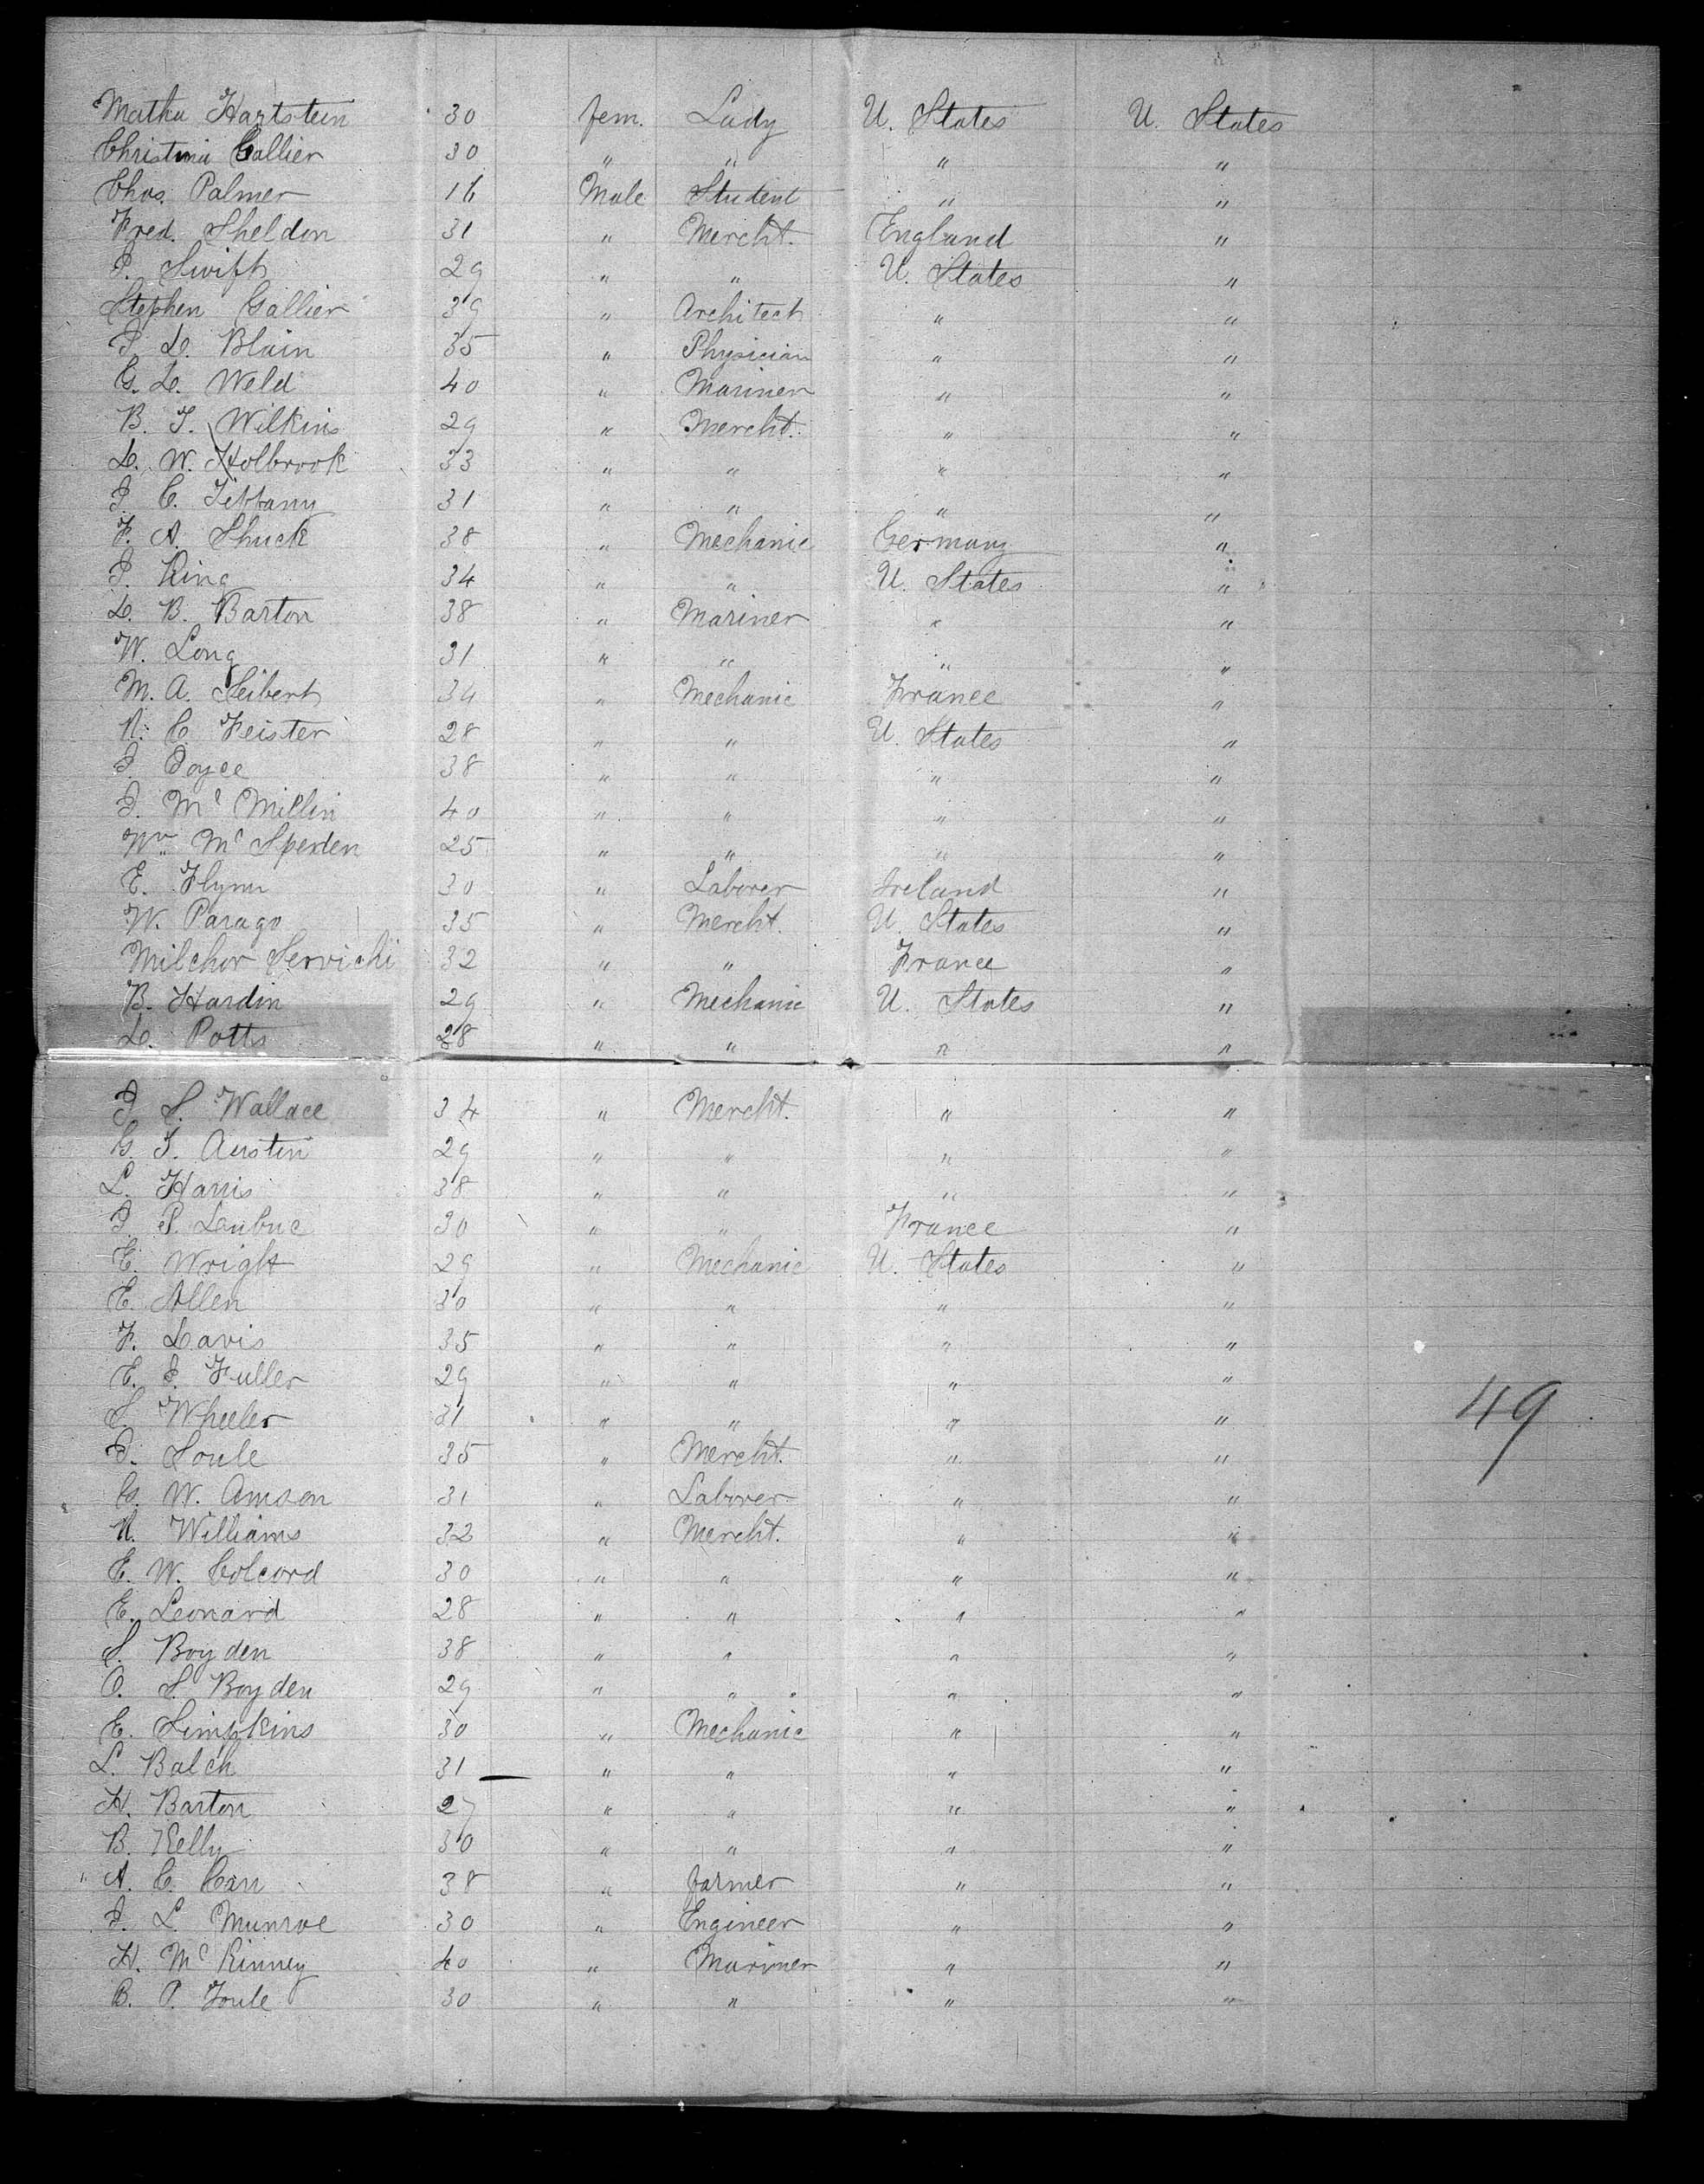 Matha Hartstein 30 fem. Lady U. States U. States
Christina Gallier 30 " " " "
Chas. Palmer 16 Male Student " "
Fred. Sheldon 31 " Mercht. England "
J. Swift 29 " " U. States "
Stephen Gallier 39 " Architect " "
J. D. Blain 35 " Physician " "
G. D. Weld 40 " Mariner " "
B. T. Wilkins 29 " Mercht. " "
D. W. Holbrook 33 " " " "
J. C. Tiffany 31 " " " "
F. A. Shuck 38 " Mechanic Germany "
J. King 34 " " U. States "
D. B. Barton 38 " Mariner " "
W. Long 31 " " " "
M. A. Seibert 34 " Mechanic France "
N. C. Feister 28 " " U. States "
J. Joyce 38 " " " "
J. Mc Millin 40 " " " "
Wm. Mc Speden 25 " " " "
E. Flynn 30 " Laborer Ireland "
W. Parago 35 " Mercht. U. States "
Milchor Servichi 32 " " France "
B. Hardin 29 " Mechanic U. States "
D. Potts 28 " " " "
J. S. Wallace 34 " Mercht. " "
G. T. Austin 29 " " " "
L. Harris 38 " " " "
J. P. 30 " " France "
E. Wright 29 " Mechanic U. States "
E. Allen 30 " " " "
F. Davis 35 " " " "
E. J. Fuller 29 " " " "
S. Wheeler 31 " " " "
J. Soule 35 " Mercht. " "
G. W. Amson 31 " Laborer " "
N. Williams 32 " Mercht. " "
E. W. Colcord 30 " " " "
E. Leonard 28 " " " "
S. Boyden 38 " " " "
O. S. Boyden 29 " " " "
E. Simpkins 30 " Mechanic " "
L. Balch 31 " " " "
H. Barton 27 " " " "
B. Kelly 30 " " " "
" A. C. 38 " farmer " "
J. L. Munroe 30 " Engineer " "
H. Mc Kinney 40 " Mariner " "
B. P. 30 " " " "
49